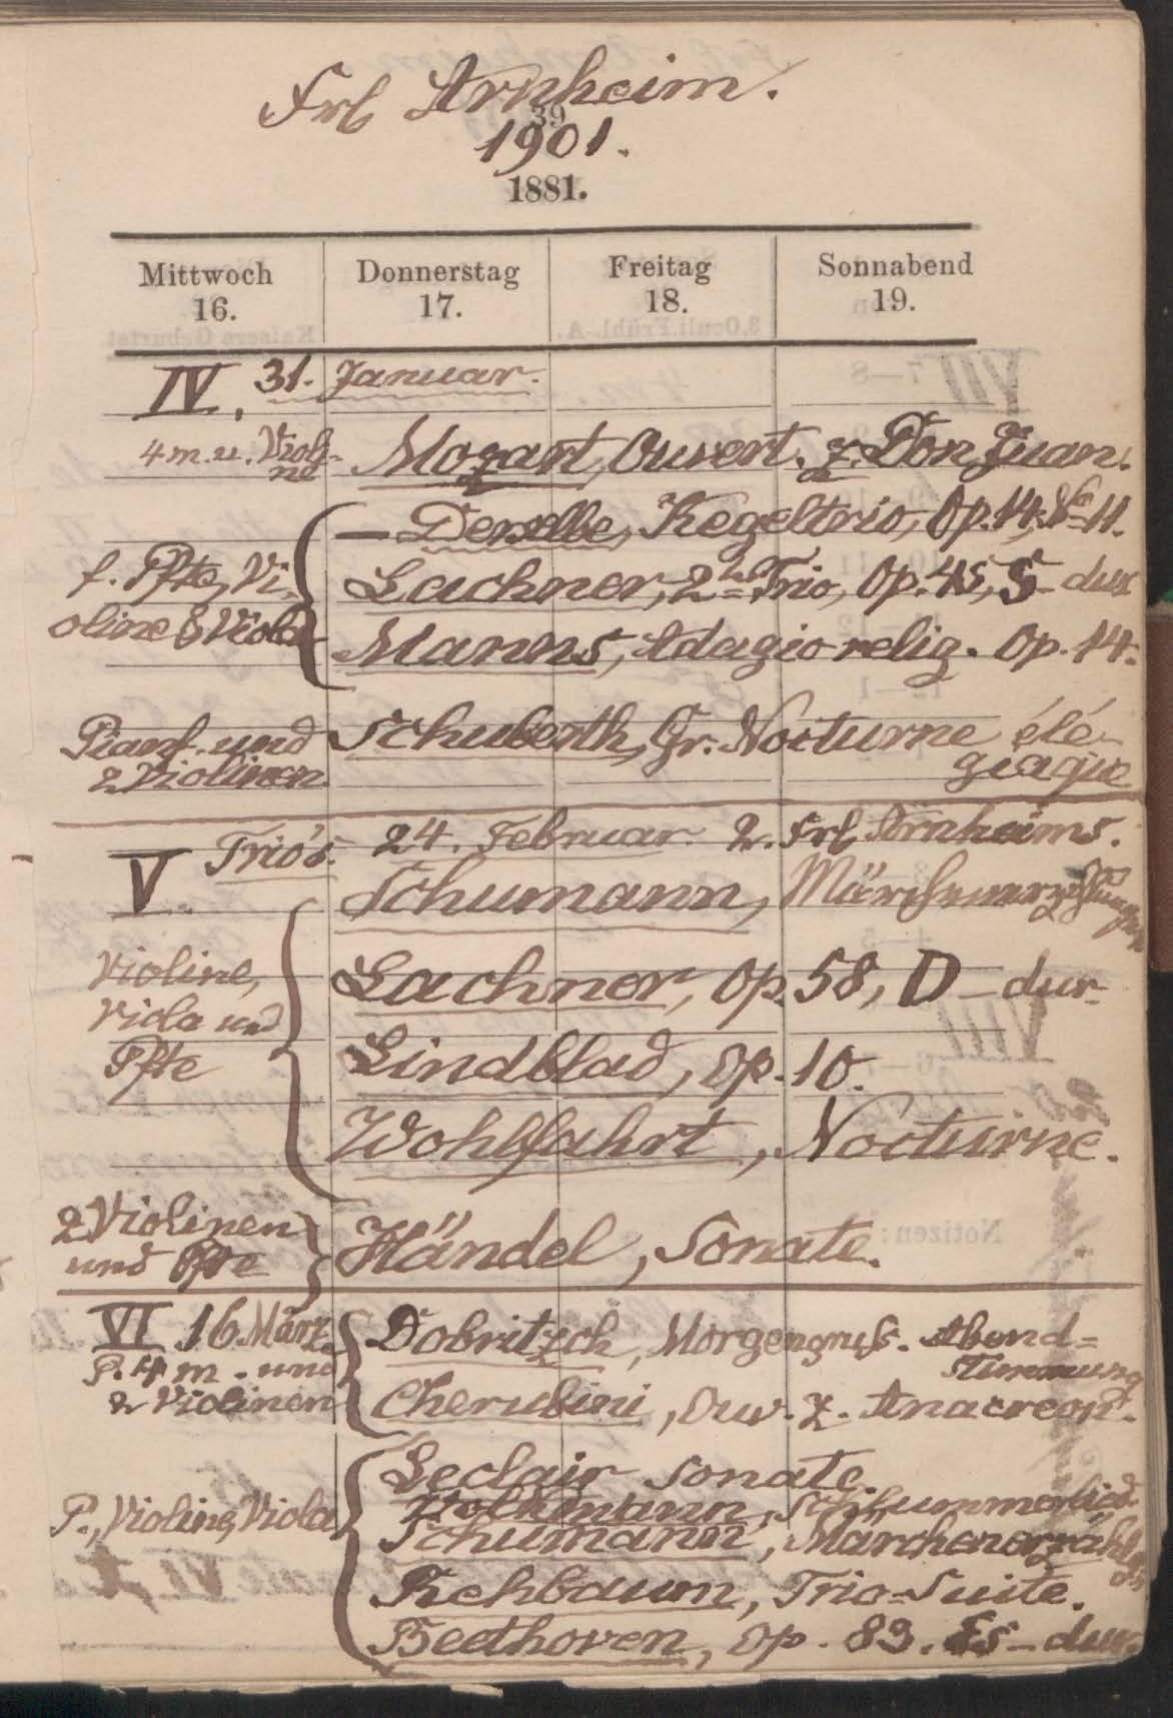 Frl Arnheim.
39
1901.
1881.
Mittwoch Donnerstag Freitag Sonnabend
16. 17. 18. 19.
IV. 31. Januar.
4 m. u. Violi-
ne
Mozart, Ouvert. z. Don Juan.
f. Pfte, Vi-
oline & Viola
— Derselbe, Kegeltrio, Op. 14, No 11.
Lachner, 2tes Trio, Op. 45, dur
Manns, Adagio relig. Op. 14.
Pianf. und
2 Violinen
Schuberth, Gr. Nocturne élé-
giaque
V Trio's. 24. Februar. 2. Frl Arnheims.
Violine,
Viola und
Pfte
Schumann, Märchenerzählungen
Lachner, Op. 58, D-dur
Lindblad, Op. 10.
Wohlfahrt, Nocturne.
2 Violinen
und Pfte
Händel, Sonate.
VI 16. März
P. 4 m. und
2 Violinen
Dobritzch, Morgengruß. Abend=
Stimmung
Cherubini, Ouv. z. Anacreon.
P., Violine, Viola
Leclair Sonate.
Volkmann, Schlummerlied.
Schumann, Märchenerzählgen
Rehbaum, Trio-Suite.
Beethoven, Op. 83. Es-dur.